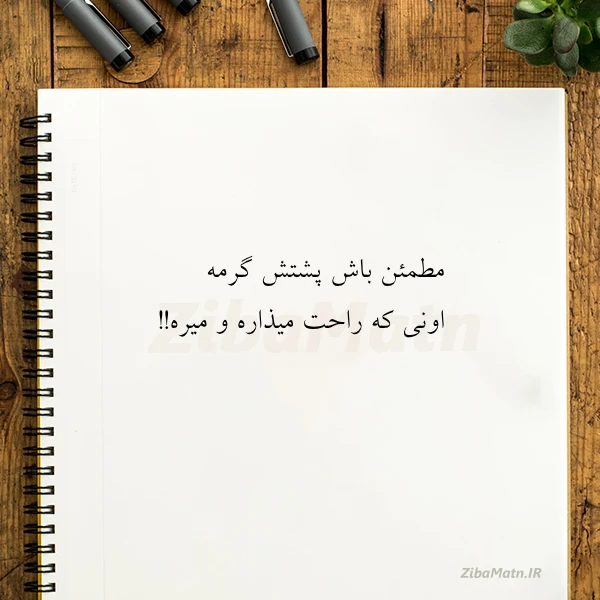 مطمئن باش پشتش گرمه
اونی که راحت میذاره و میره!!
ZibaMatn
ZibaMatn.IR